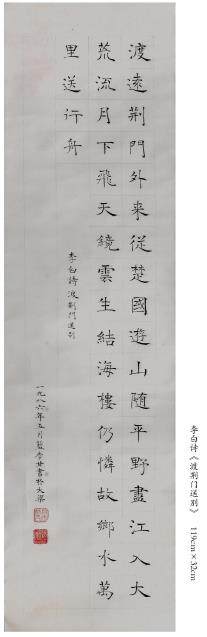 渡遠荆門外来從楚國遊山随平野盡江入大
荒流月下飛天鏡雲生結海樓仍憐故鄉水萬
里送行舟
李白詩渡荆門送别
一九八六年五月
李白诗《渡荆门送别》 119cm×32cm